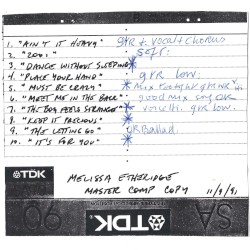 gtr + vocal + Chorus
1. "AIN'T IT HEAVY"
2. "2001"
3. "DANCE WITHOUT SLEEPING"
4. "PLACE YOUR HAND" gtr low.
5. "MUST BE CRAZY"
6. "MEET ME IN THE BACK" good mix
7. "THE BOY FEELS STRANGE" gtr low.
8. "KEEP IT PRECIOUS"
9. "THE LETTING GO" Ballad.
10. "IT'S FOR YOU"
TDK
MELISSA ETHERIDGE
MASTER COMP COPY 11/9/91
90 TDK SA